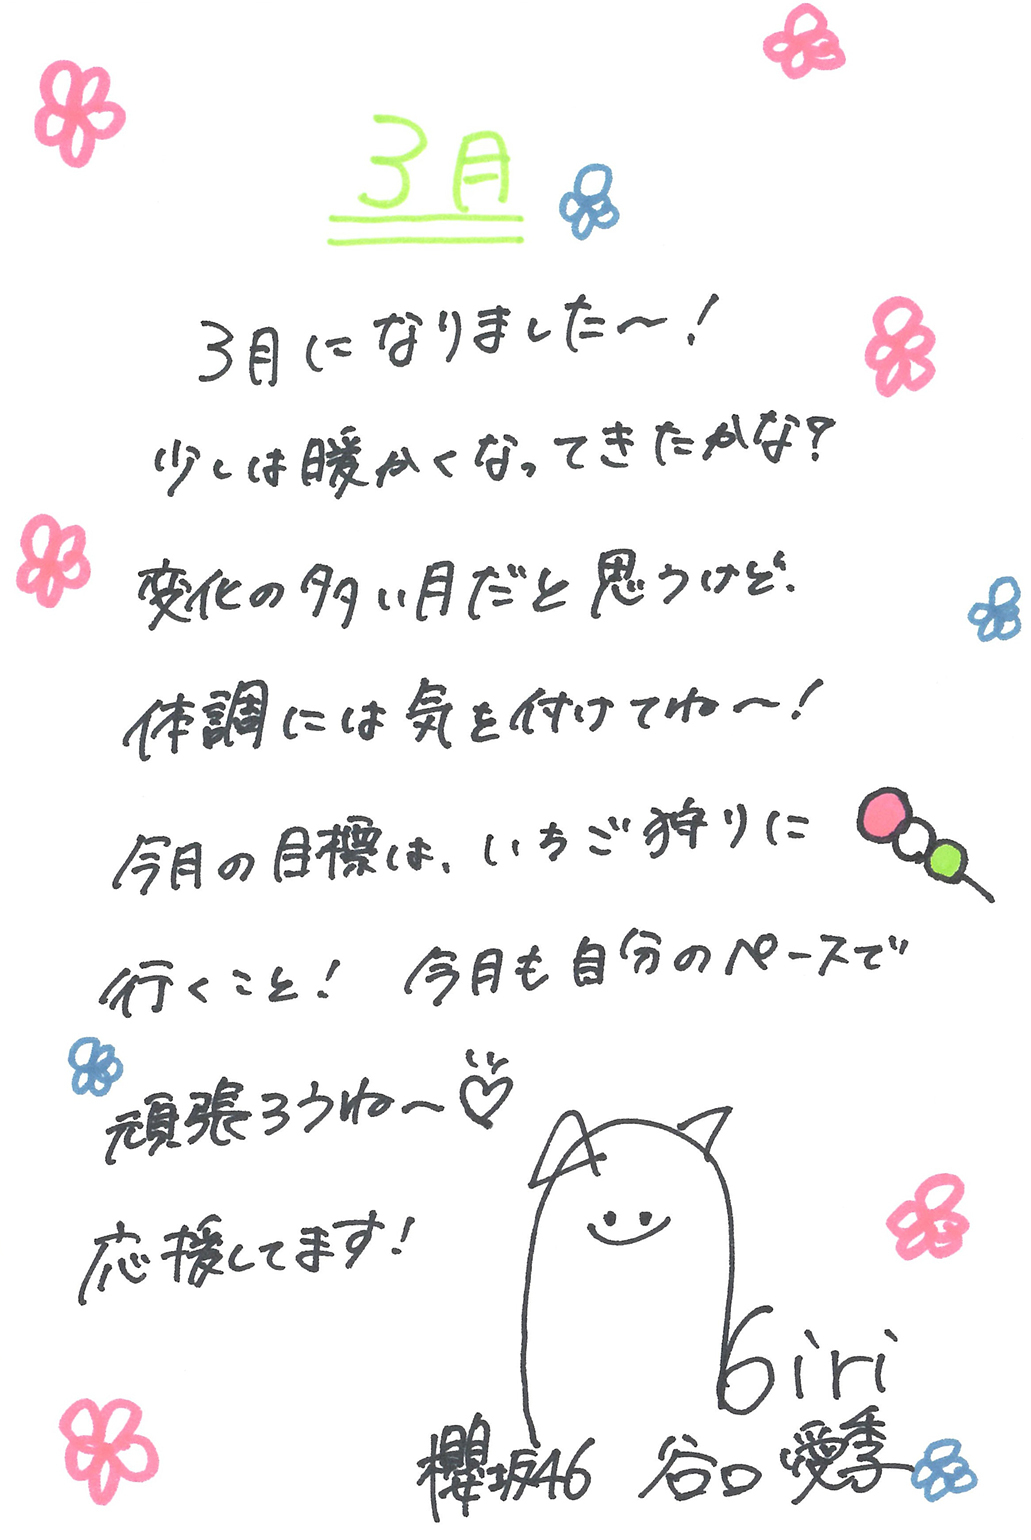 3月
3月になりました〜!
少しは暖かくなってきたかな?
変化の多い月だと思うけど、
体調には気を付けてね〜!
今月の目標は、いちご狩りに
行くこと! 今月も自分のペースで
頑張ろうね〜♡
応援してます!
airi
櫻坂46 谷口愛季